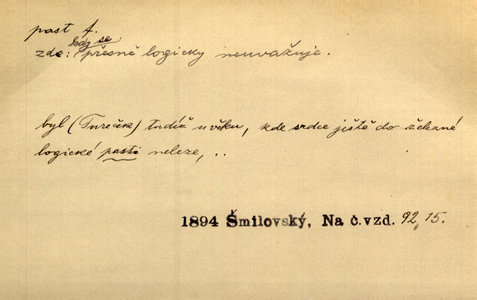 past f.
když se
zde: přesně logicky neuvažuje.
byl (Tureček) tudíž u věku, kde srdce jiště do
logické pasti neleze, ..
1894 Šmilovský, Na č.vzd. 92, 15.